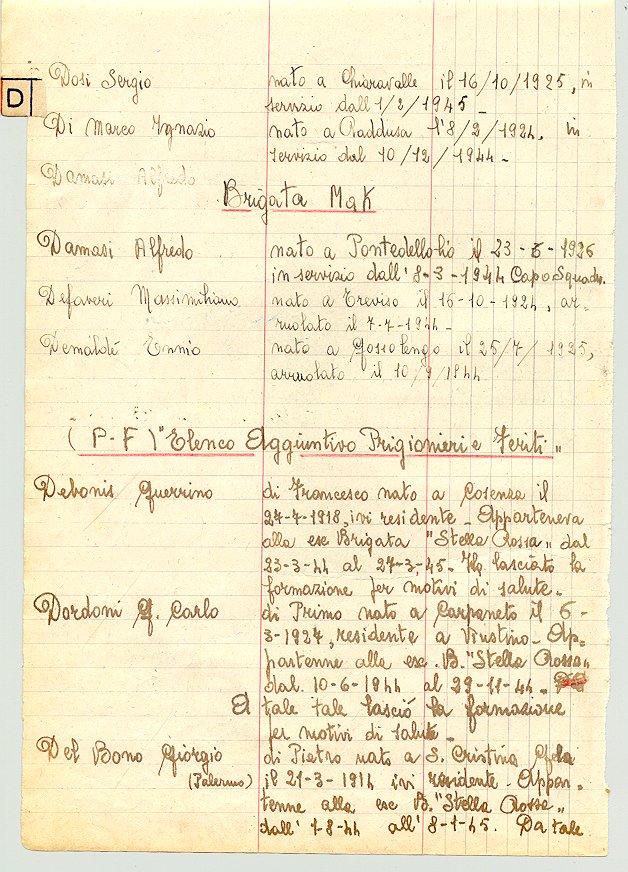 D
Dosi Sergio nato a Chiaravalle il 16/10/1925, in
servizio dall 1/2/1945 -
Di Marco Ignazio nato a Raddusa l'8/2/1924. in
servizio dal 10/12/1944 -
Damasi Alfredo
Brigata Mak
Damasi Alfredo nato a Pontedellolio il 23-5-1926
in servizio dall' 8-3-1944 Capo Squadr.
Defaveri Massimiliano nato a Treviso il 16-10-1924, ar-
ruolato il 7-7-1944 -
Demaldé Ennio nato a Gossolengo il 25/7/1925,
arruolato il 10/9/1944
(P-F) "Elenco Aggiuntivo Prigionieri e Feriti"
Debonis Guerrino di Francesco nato a Cosenza il
27-7-1918, ivi residente - Apparteneva
alla ex Brigata "Stella Rossa" dal
23-3-44 al 27-3-45. Ha lasciato la
formazione per motivi di salute -
Dordoni G. Carlo di Primo nato a Carpaneto il 6-
3-1927, residente a Viustino - Ap-
partenne alla ex. B. "Stella Rossa"
dal. 10-6-1944 al 29-11-44 -
A tale tale lasciò la formazione
per motivi di salute -
Del Bono Giorgio di Pietro nato a S. Cristina Gela
(Palermo) il 21-3-1914 ivi residente - Appar-
tenne alla ex B. "Stella Rossa"
dall' 1-8-44 all' 8-1-45. Da tale